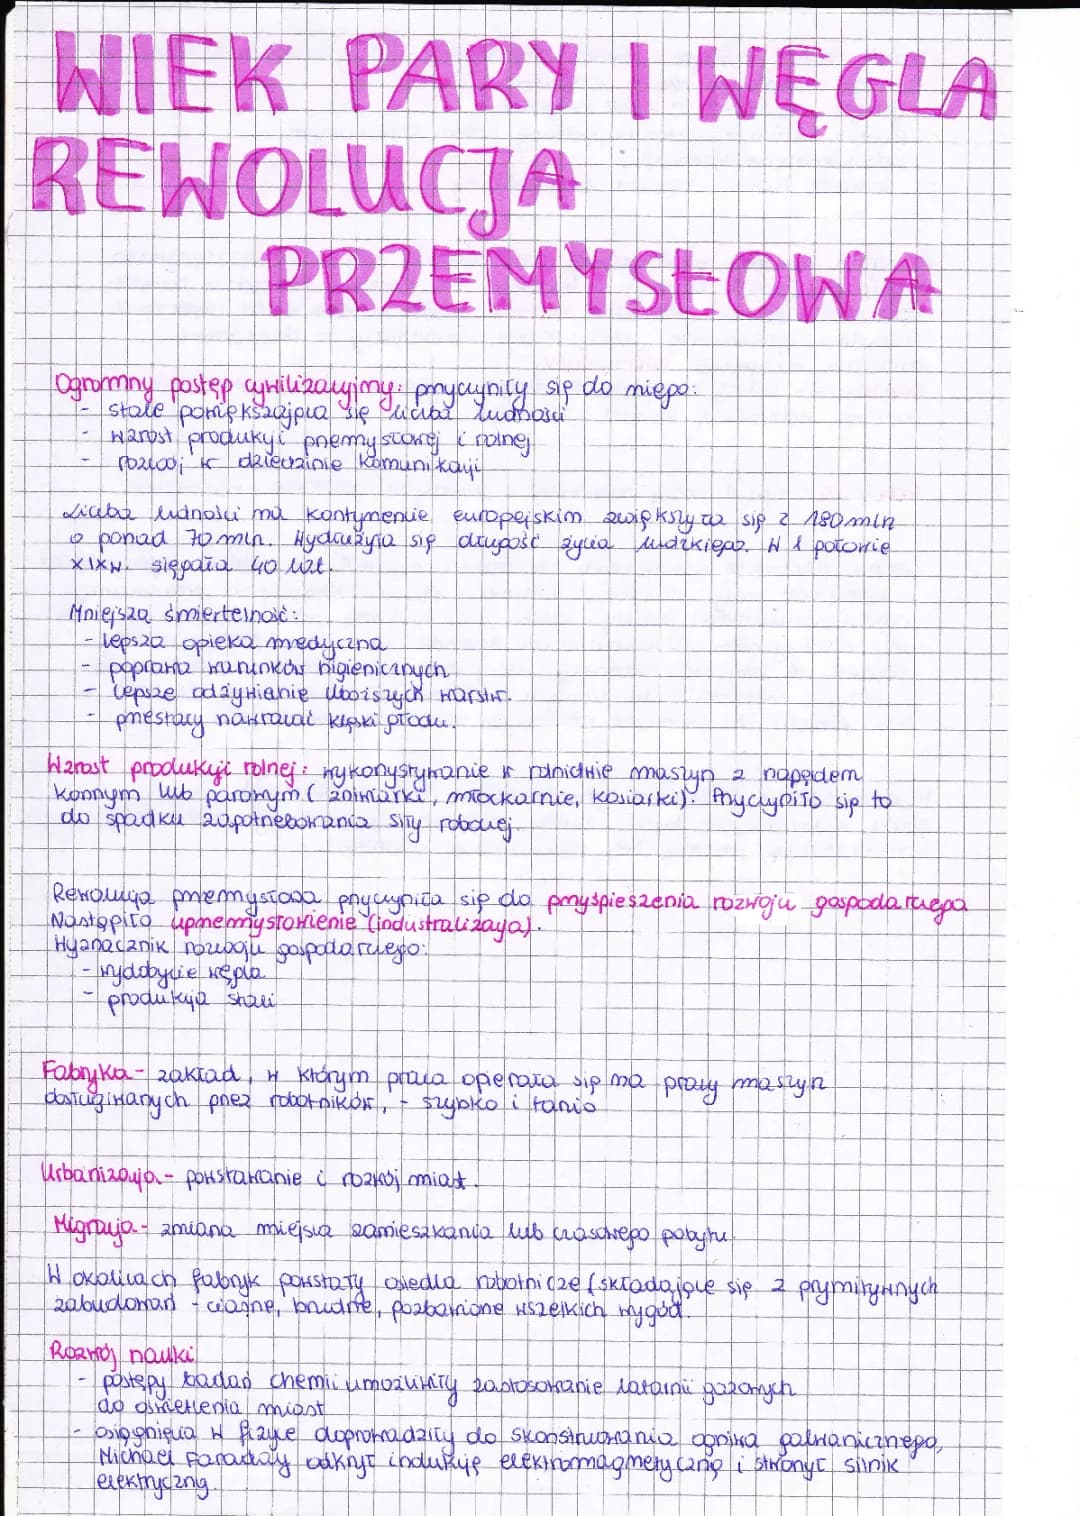 WIEK PARY I WĘGLA
REWOLUCJA
PRZEMYSŁOWA
Ogromny postęp cywilizacyjny: przyczyniły się do niego:
- stale powiększająca się liczba ludności
- wzrost produkcji przemysłowej i rolnej
- rozwój w dziedzinie komunikacji
Liczba ludności na kontynencie europejskim zwiększyła się z 180 mln
o ponad 70 mln. Wydłużyła się długość życia ludzkiego. W I połowie
XIXw. sięgała 40 lat.
Mniejsza śmiertelność:
- lepsza opieka medyczna
- poprawa warunków higienicznych
- lepsze odżywianie uboższych warstw.
- przestały nawracać klęski głodu.
Wzrost produkcji rolnej: wykorzystywanie w rolnictwie maszyn z napędem
konnym lub parowym (żniwiarki, młockarnie, kosiarki). Przyczyniło się to
do spadku zapotrzebowania siły roboczej.
Rewolucja przemysłowa przyczyniła się do przyspieszenia rozwoju gospodarczego
Nastąpiło uprzemysłowienie (industralizacja).
Wyznacznik rozwoju gospodarczego:
- wydobycie węgla
- produkcja stali
Fabryka - zakład, w którym praca opierała się na pracy maszyn
obsługiwanych przez robotników, - szybko i tanio
Urbanizacja - powstawanie i rozwój miast.
Migracja - zmiana miejsca zamieszkania lub czasowego pobytu
W okolicach fabryk powstały osiedla robotnicze (składające się z prymitywnych
zabudowań - ciasne, brudne, pozbawione wszelkich wygód.
Rozwój nauki
- postępy badań chemii umożliwiły zastosowanie latarni gazowych
do oświetlenia miast
- osiągnięcia w fizyce doprowadziły do skonstruowania ogniwa galwanicznego,
Michael Faraday odkrył indukcję elektromagnetyczną i stworzył silnik
elektryczny.